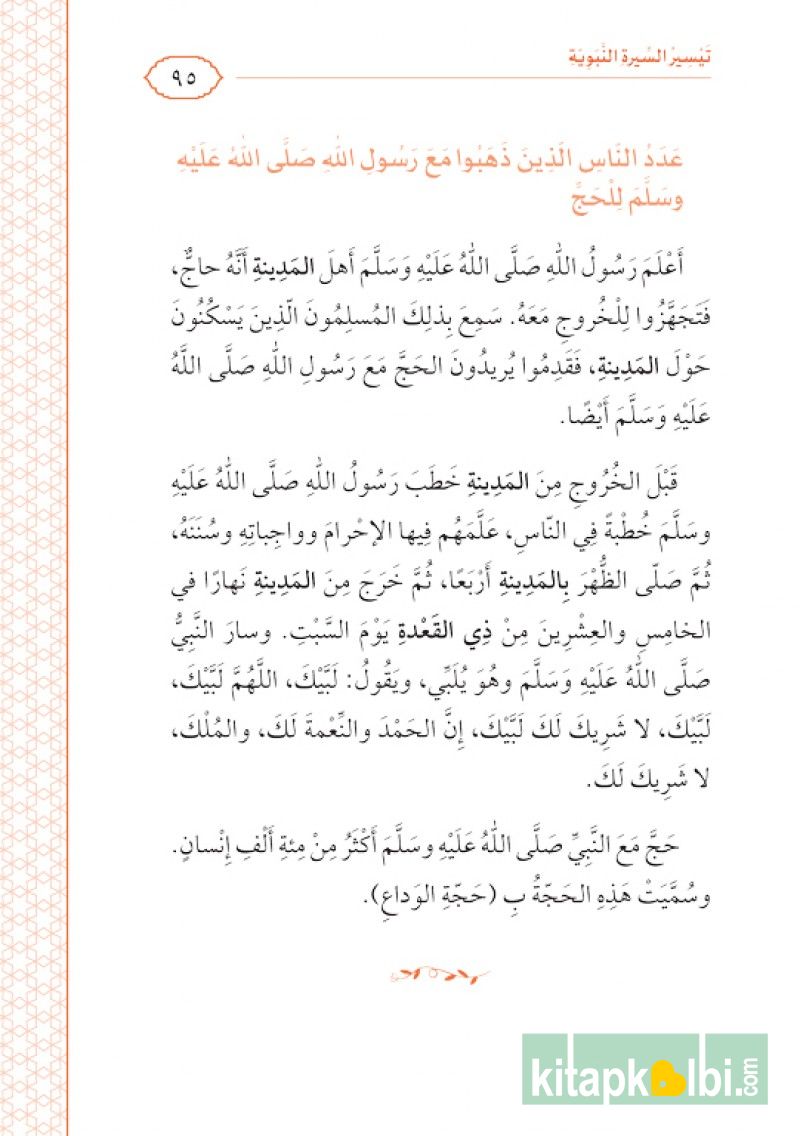 تَيْسِيرُ السِّيرةِ النَّبَوِيَةِ
٩٥
عَدَدُ النَاسِ الَذِينَ ذَهَبُوا مَعَ رَسُولِ اللهِ صَلَّى اللهُ عَلَيْهِ
وَسَلَّمَ لِلْحَجِّ
أَعْلَمَ رَسُولُ اللهِ صَلَّى اللهُ عَلَيْهِ وَسَلَّمَ أَهلَ المَدِينةِ أَنَّهُ حاجٌّ،
فَتَجَهَّزُوا لِلْخُروجِ مَعَهُ. سَمِعَ بِذلِكَ المُسلِمُونَ الّذِينَ يَسْكُنُونَ
حَوْلَ المَدِينةِ، فَقَدِمُوا يُرِيدُونَ الحَجَّ مَعَ رَسُولِ اللهِ صَلَّى اللَّهُ
عَلَيْهِ وَسَلَّمَ أَيْضًا.
قَبْلَ الخُرُوجِ مِنَ المَدِينةِ خَطَبَ رَسُولُ اللهِ صَلَّى اللهُ عَلَيْهِ
وسَلَّمَ خُطْبةً فِي النّاسِ، عَلَّمَهُم فِيها الإحْرامَ وواجِباتِهِ وسُنَنَهُ،
ثُمَّ صَلّى الظُّهْرَ بِالمَدِينةِ أَرْبَعًا، ثُمَّ خَرَجَ مِنَ المَدِينةِ نَهارًا في
الخامِسِ والعِشْرِينَ مِنْ ذِي القَعْدةِ يَوْمَ السَّبْتِ. وسارَ النَّبِيُّ
صَلَّى اللهُ عَلَيْهِ وَسَلَّمَ وهُوَ يُلَبِّي، ويَقُولُ: لَبَّيْكَ، اللَّهُمَّ لَبَّيْكَ،
لَبَّيْكَ، لا شَرِيكَ لَكَ لَبَّيْكَ، إِنَّ الحَمْدَ والنِّعْمةَ لَكَ، والمُلْكَ،
لا شَرِيكَ لَكَ.
حَجَّ مَعَ النَّبِيِّ صَلَّى اللهُ عَلَيْهِ وسَلَّمَ أَكْثَرُ مِنْ مِئةِ أَلْفِ إِنْسانٍ.
وسُمَّيَتْ هَذِهِ الحَجّةُ بِ (حَجّةِ الوَداعِ).
kitapkalbi.com